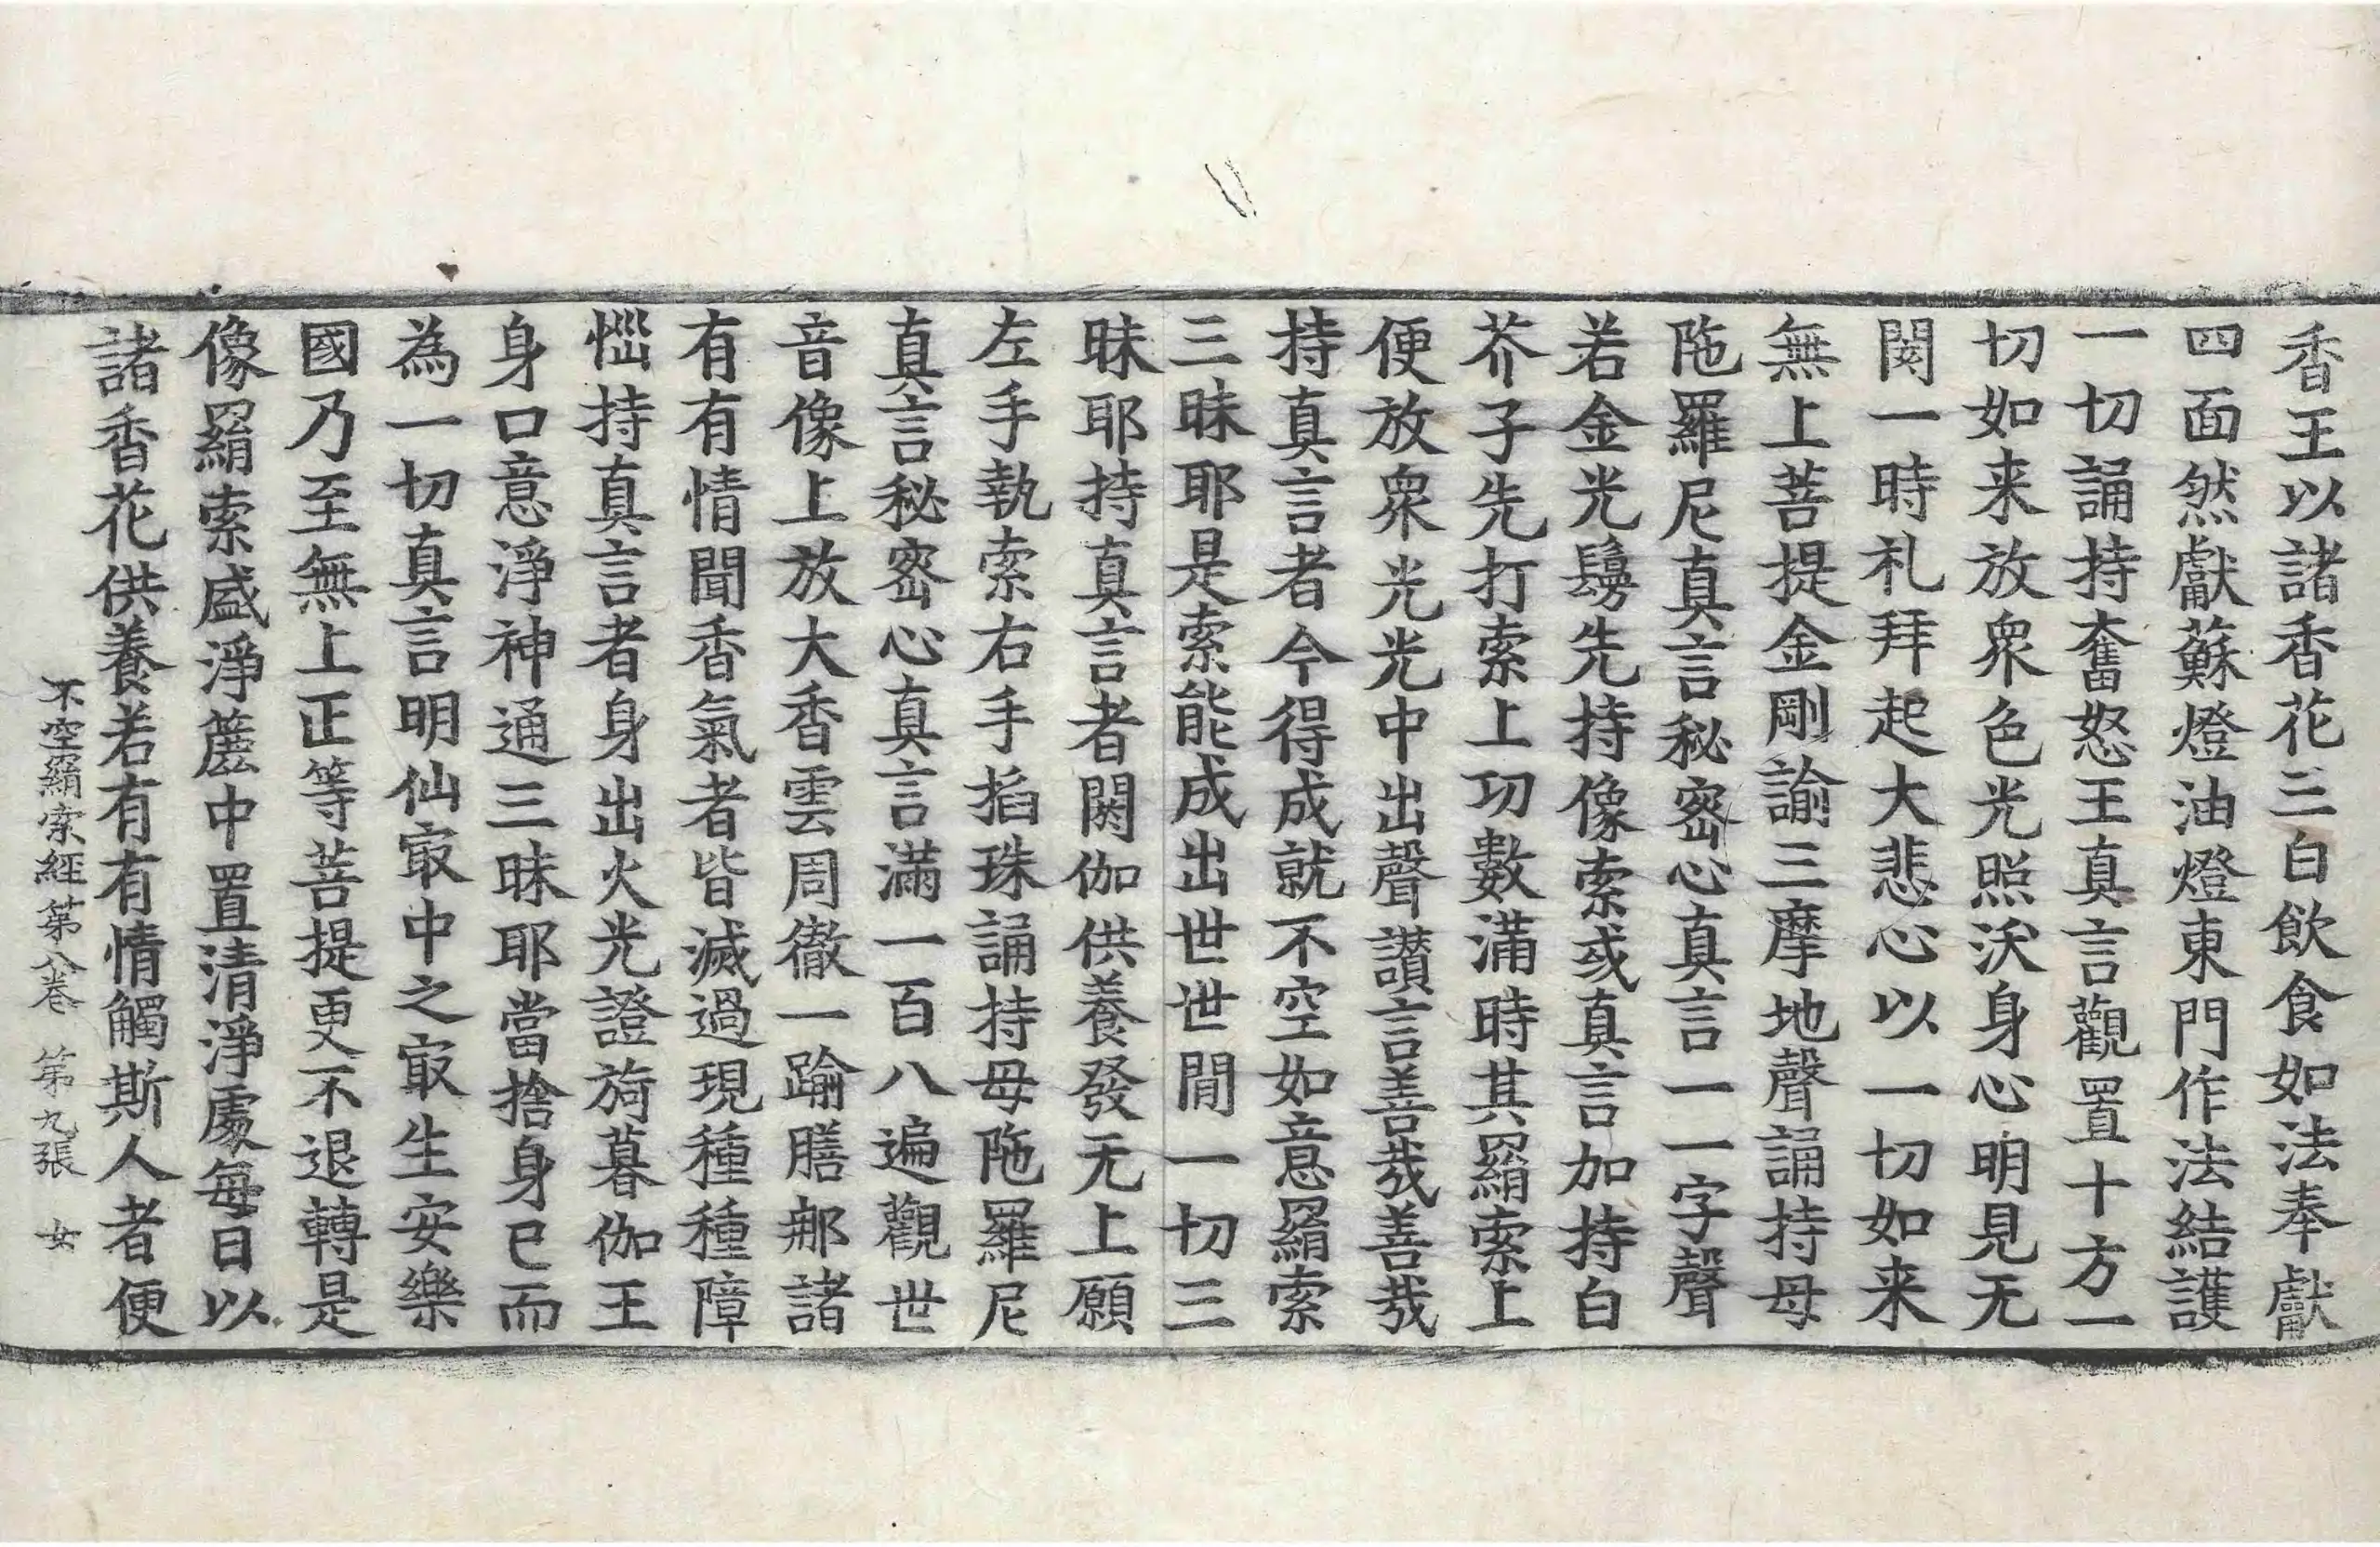 香王以諸香花三白飲食如法奉獻
四面然獻蘇燈油燈東門作法結護
一切誦持奮怒王真言觀置十方一
切如来放衆色光照沃身心明見无
閡一時礼拜起大悲心以一切如来
無上菩提金剛諭三摩地聲誦持母
陁羅尼真言秘密心真言一一字聲
若金光鬘先持像索或真言加持白
芥子先打索上功數滿時其羂索上
便放衆光光中出聲讃言善哉善哉
持真言者今得成就不空如意羂索
三昧耶是索能成出世世間一切三
昧耶持真言者閼伽供養發无上願
左手執索右手掐珠誦持母陁羅尼
真言秘密心真言滿一百八遍觀世
音像上放大香雲周徹一踰膳那諸
有有情聞香氣者皆滅過現種種障
惱持真言者身出火光證旖暮伽王
身口意淨神通三昧耶當捨身已而
為一切真言明仙㝡中之㝡生安樂
國乃至無上正等菩提更不退轉是
像羂索盛淨㢓中置清淨處每日以
諸香花供養若有有情觸斯人者便
不空羂索経第八卷 第九張 女